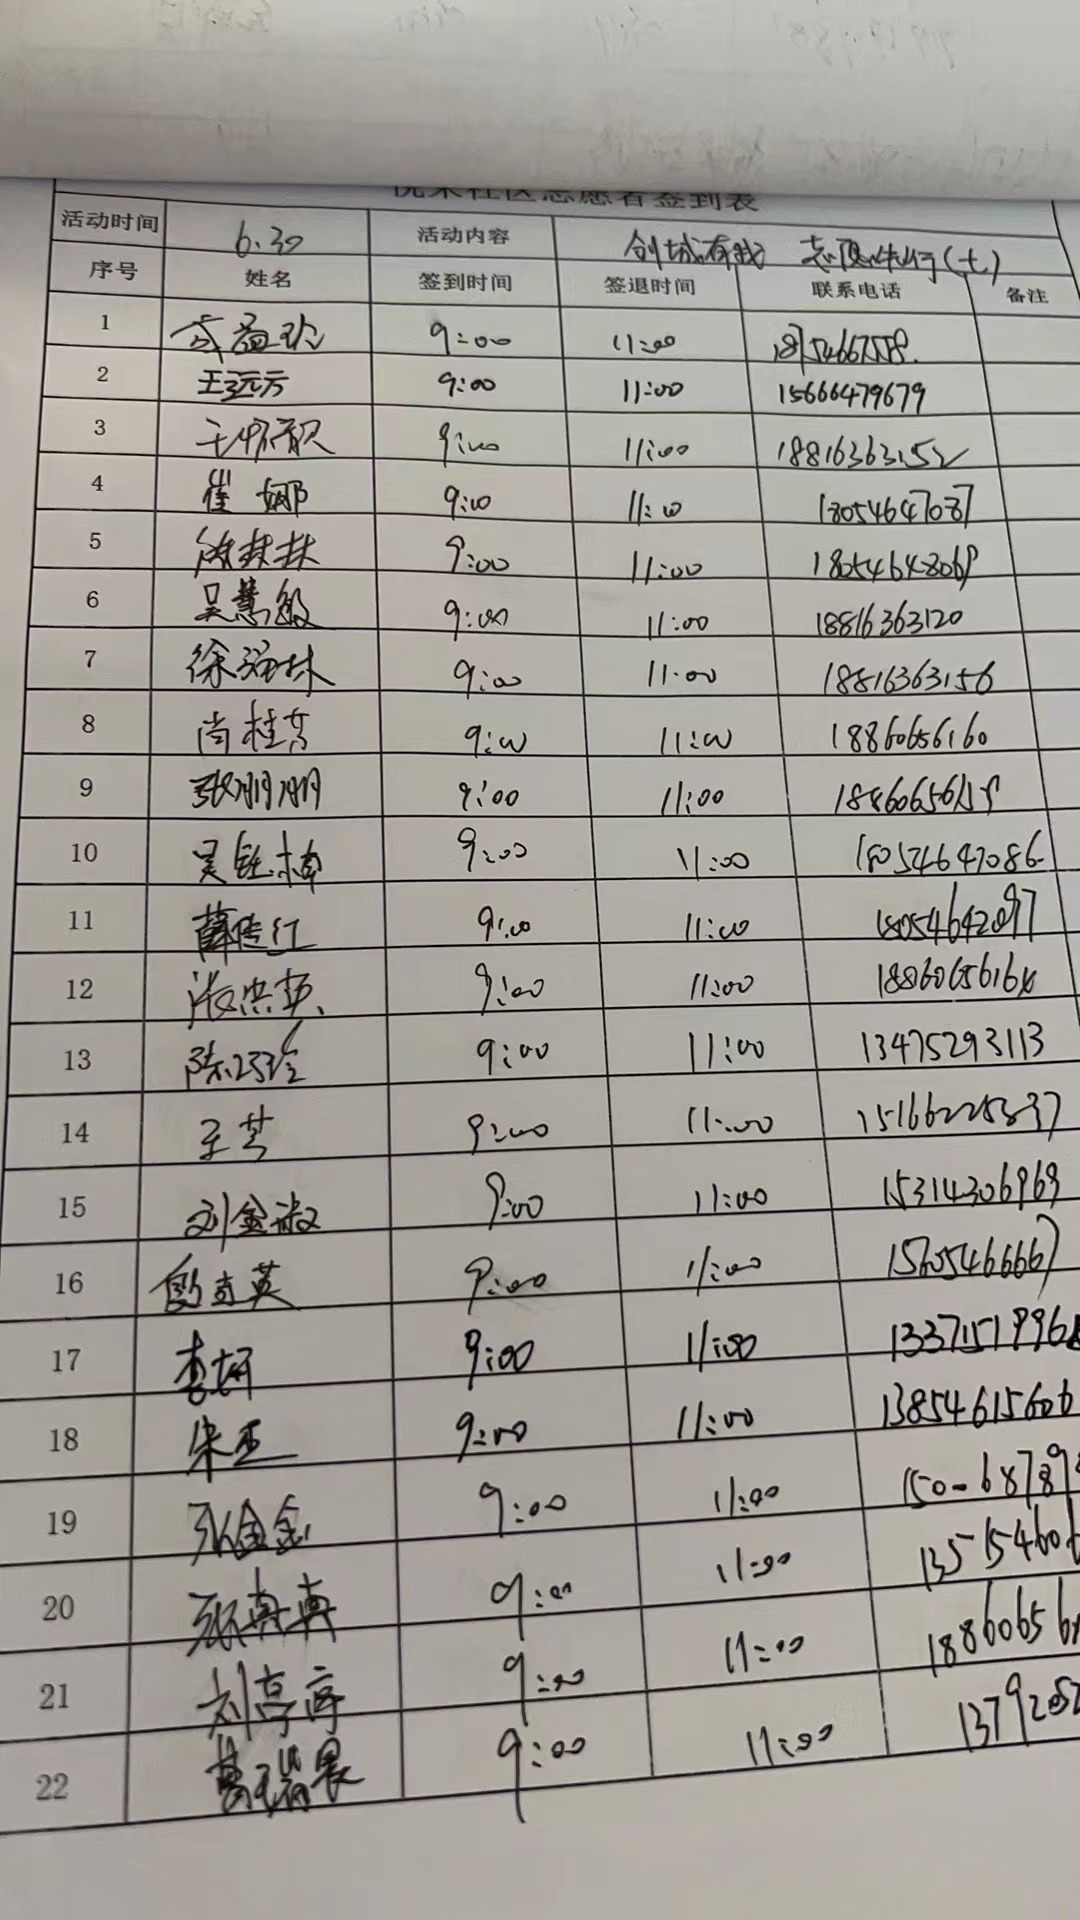 社区志愿者签到表
活动时间 6.30 活动内容 创城有我 志愿先行(七)
序号 姓名 签到时间 签退时间 联系电话 备注
1 9:00 11:00
2 王远方 9:00 11:00 15666479679
3 9:00 11:00 18816363152
4 崔娜 9:00 11:00 18054647087
5 徐扶扶 9:00 11:00 18054648069
6 吴慧敏 9:00 11:00 18816363120
7 徐强林 9:00 11:00 18816363156
8 尚桂芳 9:00 11:00 18860656160
9 张朋朋 9:00 11:00
10 吴 楠 9:00 11:00 18054647086
11 薛传红 9:00 11:00 18054642097
12 9:00 11:00
13 陈巧玲 9:00 11:00 13475293113
14 王芳 9:00 11:00
15 刘金淑 9:00 11:00 15314306969
16 英 9:00 11:00 15605466667
17 李妍 9:00 11:00 1337151996
18 宋玉 9:00 11:00 13854615606
19 张金金 9:00 11:00
20 张真真 9:00 11:00 135154606
21 刘亭亭 9:00 11:00 188606561
22 葛瑞晨 9:00 11:00 1379205